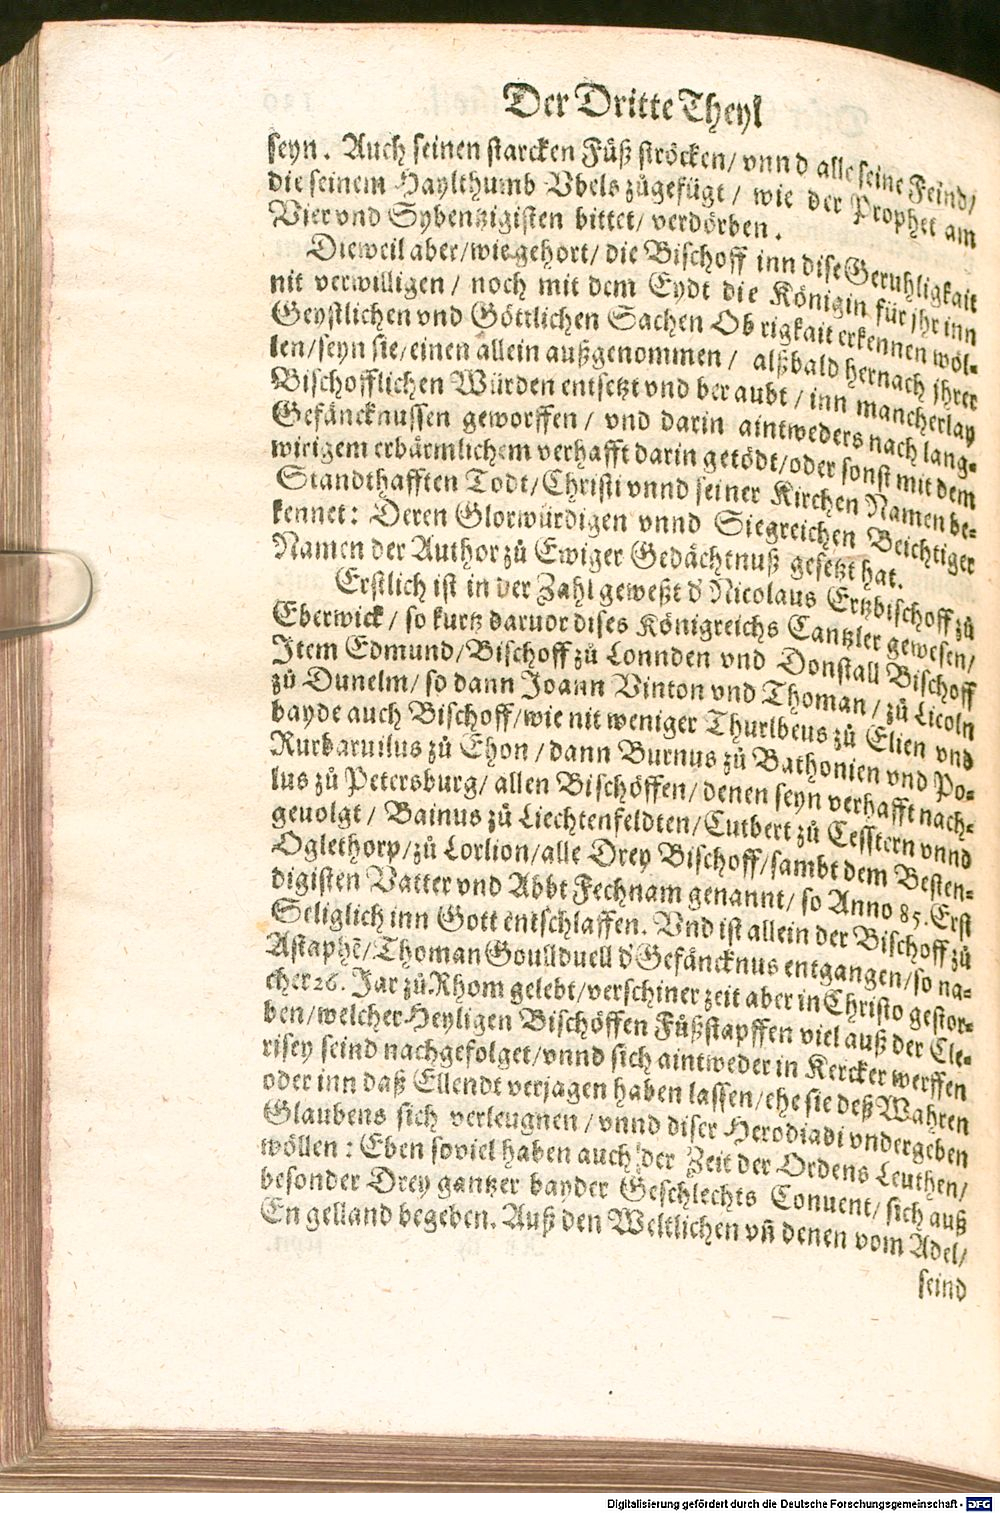 Der Dritte Theyl
seyn. Auch seinen starcken Füß ströcken/ vnnd alle seine Feind/
die seinem Haylthumb Vbels zůgefügt / wie der Prophet am
Vier vnd Sybentzigisten bittet/ verdörben.
Dieweil aber/wie gehort/ die Bischoff inn dise Geruhligkait
nit verwilligen / noch mit dem Eydt die Königin für jhr inn
Geystlichen vnd Göttlichen Sachen Ob rigkait erkennen wöl-
len/seyn sie/einen allein außgenommen / alßbald hernach jhrer
Bischofflichen Würden entsetzt vnd beraubt / inn mancherlay
Gefäncknussen geworffen / vnd darin aintweders nach lang-
wirigem erbärmlichem verhafft darin getödt/oder sonst mit dem
Standthafften Todt/Christi vnnd seiner Kirchen Namen be-
kennet: Deren Glorwürdigen vnnd Siegreichen Beichtiger
Namen der Author zů Ewiger Gedächtnuß gesetzt hat.
Erstlich ist in der Zahl geweßt d' Nicolaus Ertzbischoff zů
Eberwick / so kurtz daruor dises Königreichs Cantzler gewesen/
Item Edmund/Bischoff zů Lonnden vnd Donstall Bischoff
zů Dunelm/ so dann Joann Vinton vnd Thoman / zů Licoln
bayde auch Bischoff/wie nit weniger Thurlbeus zů Elien vnd
Rurbaruilus zů Ehon / dann Burnus zů Bathonien vnd Po-
lus zů Petersburg/ allen Bischöffen/ denen seyn verhafft nach-
geuolgt / Bainus zů Liechtenfeldten/Cutbert zů Cesstern vnnd
Oglethorp/zů Lorlion/alle Drey Bischoff/sambt dem Besten-
digisten Vatter vnd Abbt Fechnam genannt/ so Anno 85. Erst
Seliglich inn Gott entschlaffen. Vnd ist allein der Bischoff zů
Astaphē/Thoman Goullduell d' Gefäncknus entgangen/so na-
cher 26. Jar zů Rhom gelebt/verschiner zeit aber in Christo gestor-
ben/welcher Heyligen Bischöffen Fůßstapffen viel auß der Cle-
risey seind nachgefolget/vnnd sich aintweder in Kercker werffen
oder inn daß Ellendt verjagen haben lassen/ehe sie deß Wahren
Glaubens sich verleugnen / vnnd diser Herodiadi vndergeben
wöllen: Eben soviel haben auch der Zeit der Ordens Leuthen/
besonder Drey gantzer bayder Geschlechts Conuent/ sich auß
En gelland begeben. Auß den Weltlichen vñ denen vom Adel/
seind
Digitalisierung gefördert durch die Deutsche Forschungsgemeinschaft - DFG